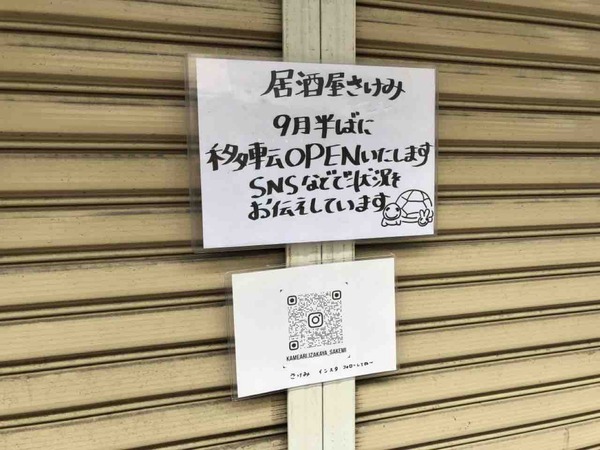 居酒屋さけみ
9月半ばに
移転OPENいたします
SNSなどで状況を
お伝えしています
KAMEARI.IZAKAYA_SAKEMI
さけみ インスタ フォローしてねー